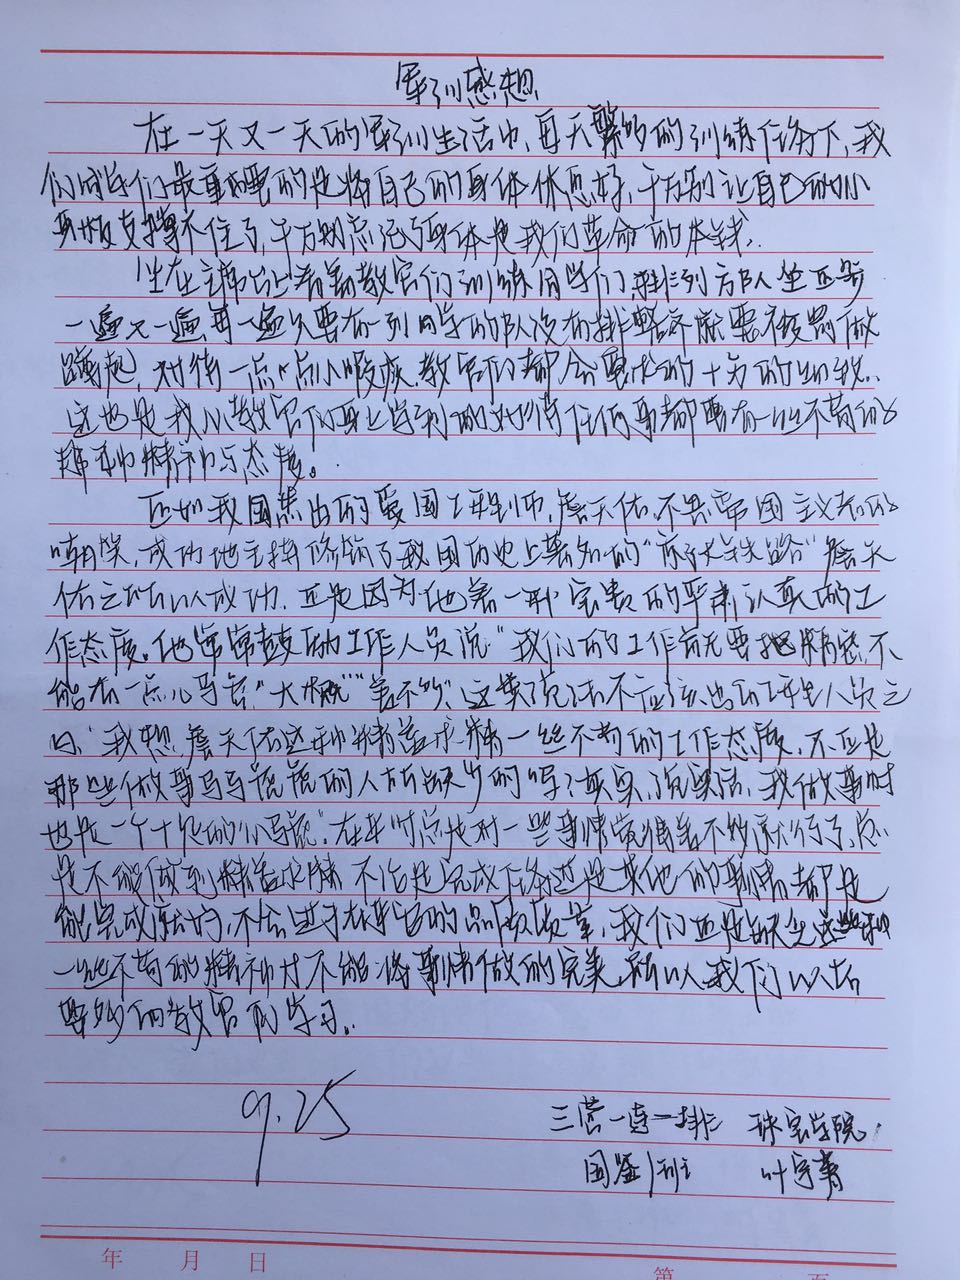 军训感想
在一天又一天的军训生活中,每天繁多的训练任务下,我
们同学们最重要的是将自己的身体休息好,千万别让自己的小
身板支撑不住了,千万别忘记了身体是我们革命的本钱.
坐在主席台上看着教官们训练同学们,排列方队坐正步
一遍又一遍,每一遍只要有一列同学的队没有排整齐就要被罚做
蹲起,对待一点点小瑕疵,教官们都会要求的十分的
这也是我从教官们身上学到的对待任何事都要有一丝不苟的
精神与态度。
正如我国杰出的爱国工程师,詹天佑,不畏帝国主义者的
嘲笑,成功地主持修筑了我国历史上著名的"京张铁路"詹天
佑之所以成功,正是因为他着一种宝贵的严肃认真的工
作态度。他常常鼓励工作人员说"我们的工作首先要精密,不
能有一点儿马虎,"大概""差不多"这类说法不应该出自工程人员之
口"我想,詹天佑这种精益求精一丝不苟的工作态度,不正是
那些做事马马虎虎的人所缺少的吗?其实,说实话,我做事时
也是一个十足的"小马虎"在平时总是对一些事情觉得差不多就行了,总
是不能做到精益求精不论是完成任务还是其他的事情都是
能完成就好,不会过于在乎它的品质质量,我们正是缺少这些
一丝不苟的精神才不能将事情做的完美所以我们以后
要多向教官们学习.
9.25
三营一连一排 珠宝学院
国鉴1班
年 月 日
第 页